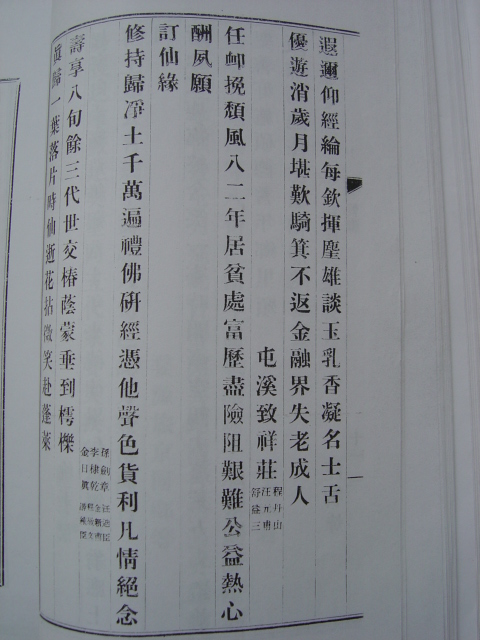 遐邇仰經綸每欽揮麈雄談玉乳香凝名士舌
優遊消歲月堪歎騎箕不返金融界失老成人
屯溪致祥莊
程丹山
汪元甫
任卹挽頹風八二年居貧處富歷盡險阻艱難公益熱心
酬夙願
訂仙緣
修持歸淨土千萬遍禮佛研經憑他聲色貨利凡情絕念
孫劍章
李棣乾
壽享八旬餘三代世交椿蔭蒙垂到樗櫟
眞歸一葉落片時仙逝花拈微笑赴蓬萊